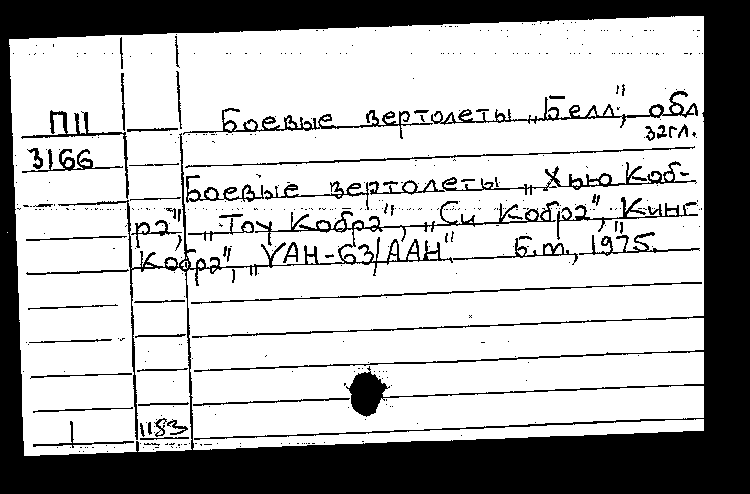 П11 Боевые вертолеты „Белл", обл.
32гл.
3166
Боевые вертолеты „Хью Коб-
ра", „Тоу Кобра", „Си Кобра", Кинг
Кобра", „YAH-63/AAH". Б.т., 1975.
1 1183